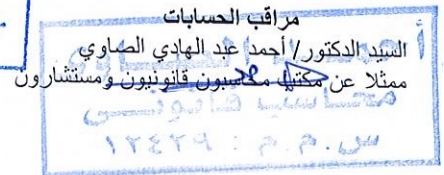 مراقب الحسابات
السيد الدكتور/ أحمد عبد الهادي الصاوي
ممثلا عن مكتب محاسبون قانونيون ومستشارون
محاسب قانوني
س.م.م : ١٢٤٢٩